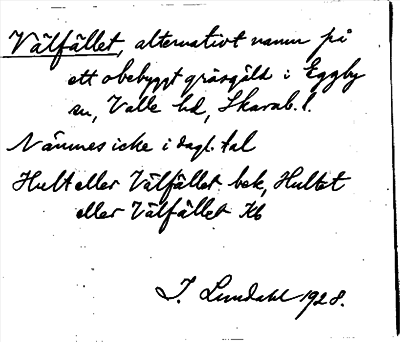 Välfället, alternativt namn på
ett obebyggt gräsgäld i Eggby
sn, Valle hd, Skarab. l.
Nämnes icke i dagl. tal
Hult eller Välfället bek, Hultet
eller Välfället Kb
I. Lundahl 1928.